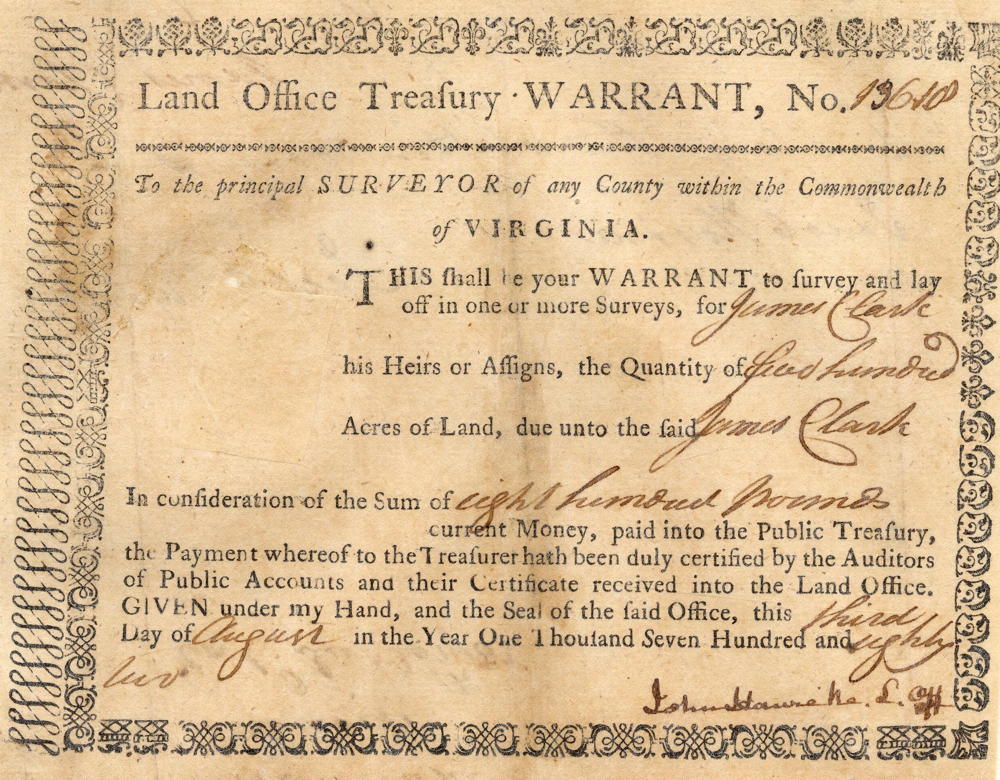 Land Office Treaſury WARRANT, No. 13618
To the principal SURVEYOR of any County within the Commonwealth
of VIRGINIA.
THIS ſhall be your WARRANT to ſurvey and lay
off in one or more Surveys, for James Clark
his Heirs or Aſſigns, the Quantity of five hundred
Acres of Land, due unto the ſaid James Clark
In conſideration of the Sum of eight hundred Pounds
current Money, paid into the Public Treaſury,
the Payment whereof to the Treaſurer hath been duly certified by the Auditors
of Public Accounts and their Certificate received into the Land Office.
GIVEN under my Hand, and the Seal of the ſaid Office, this third
Day of August in the Year One Thouſand Seven Hundred and eighty
two
John Harvie Re. L. Off